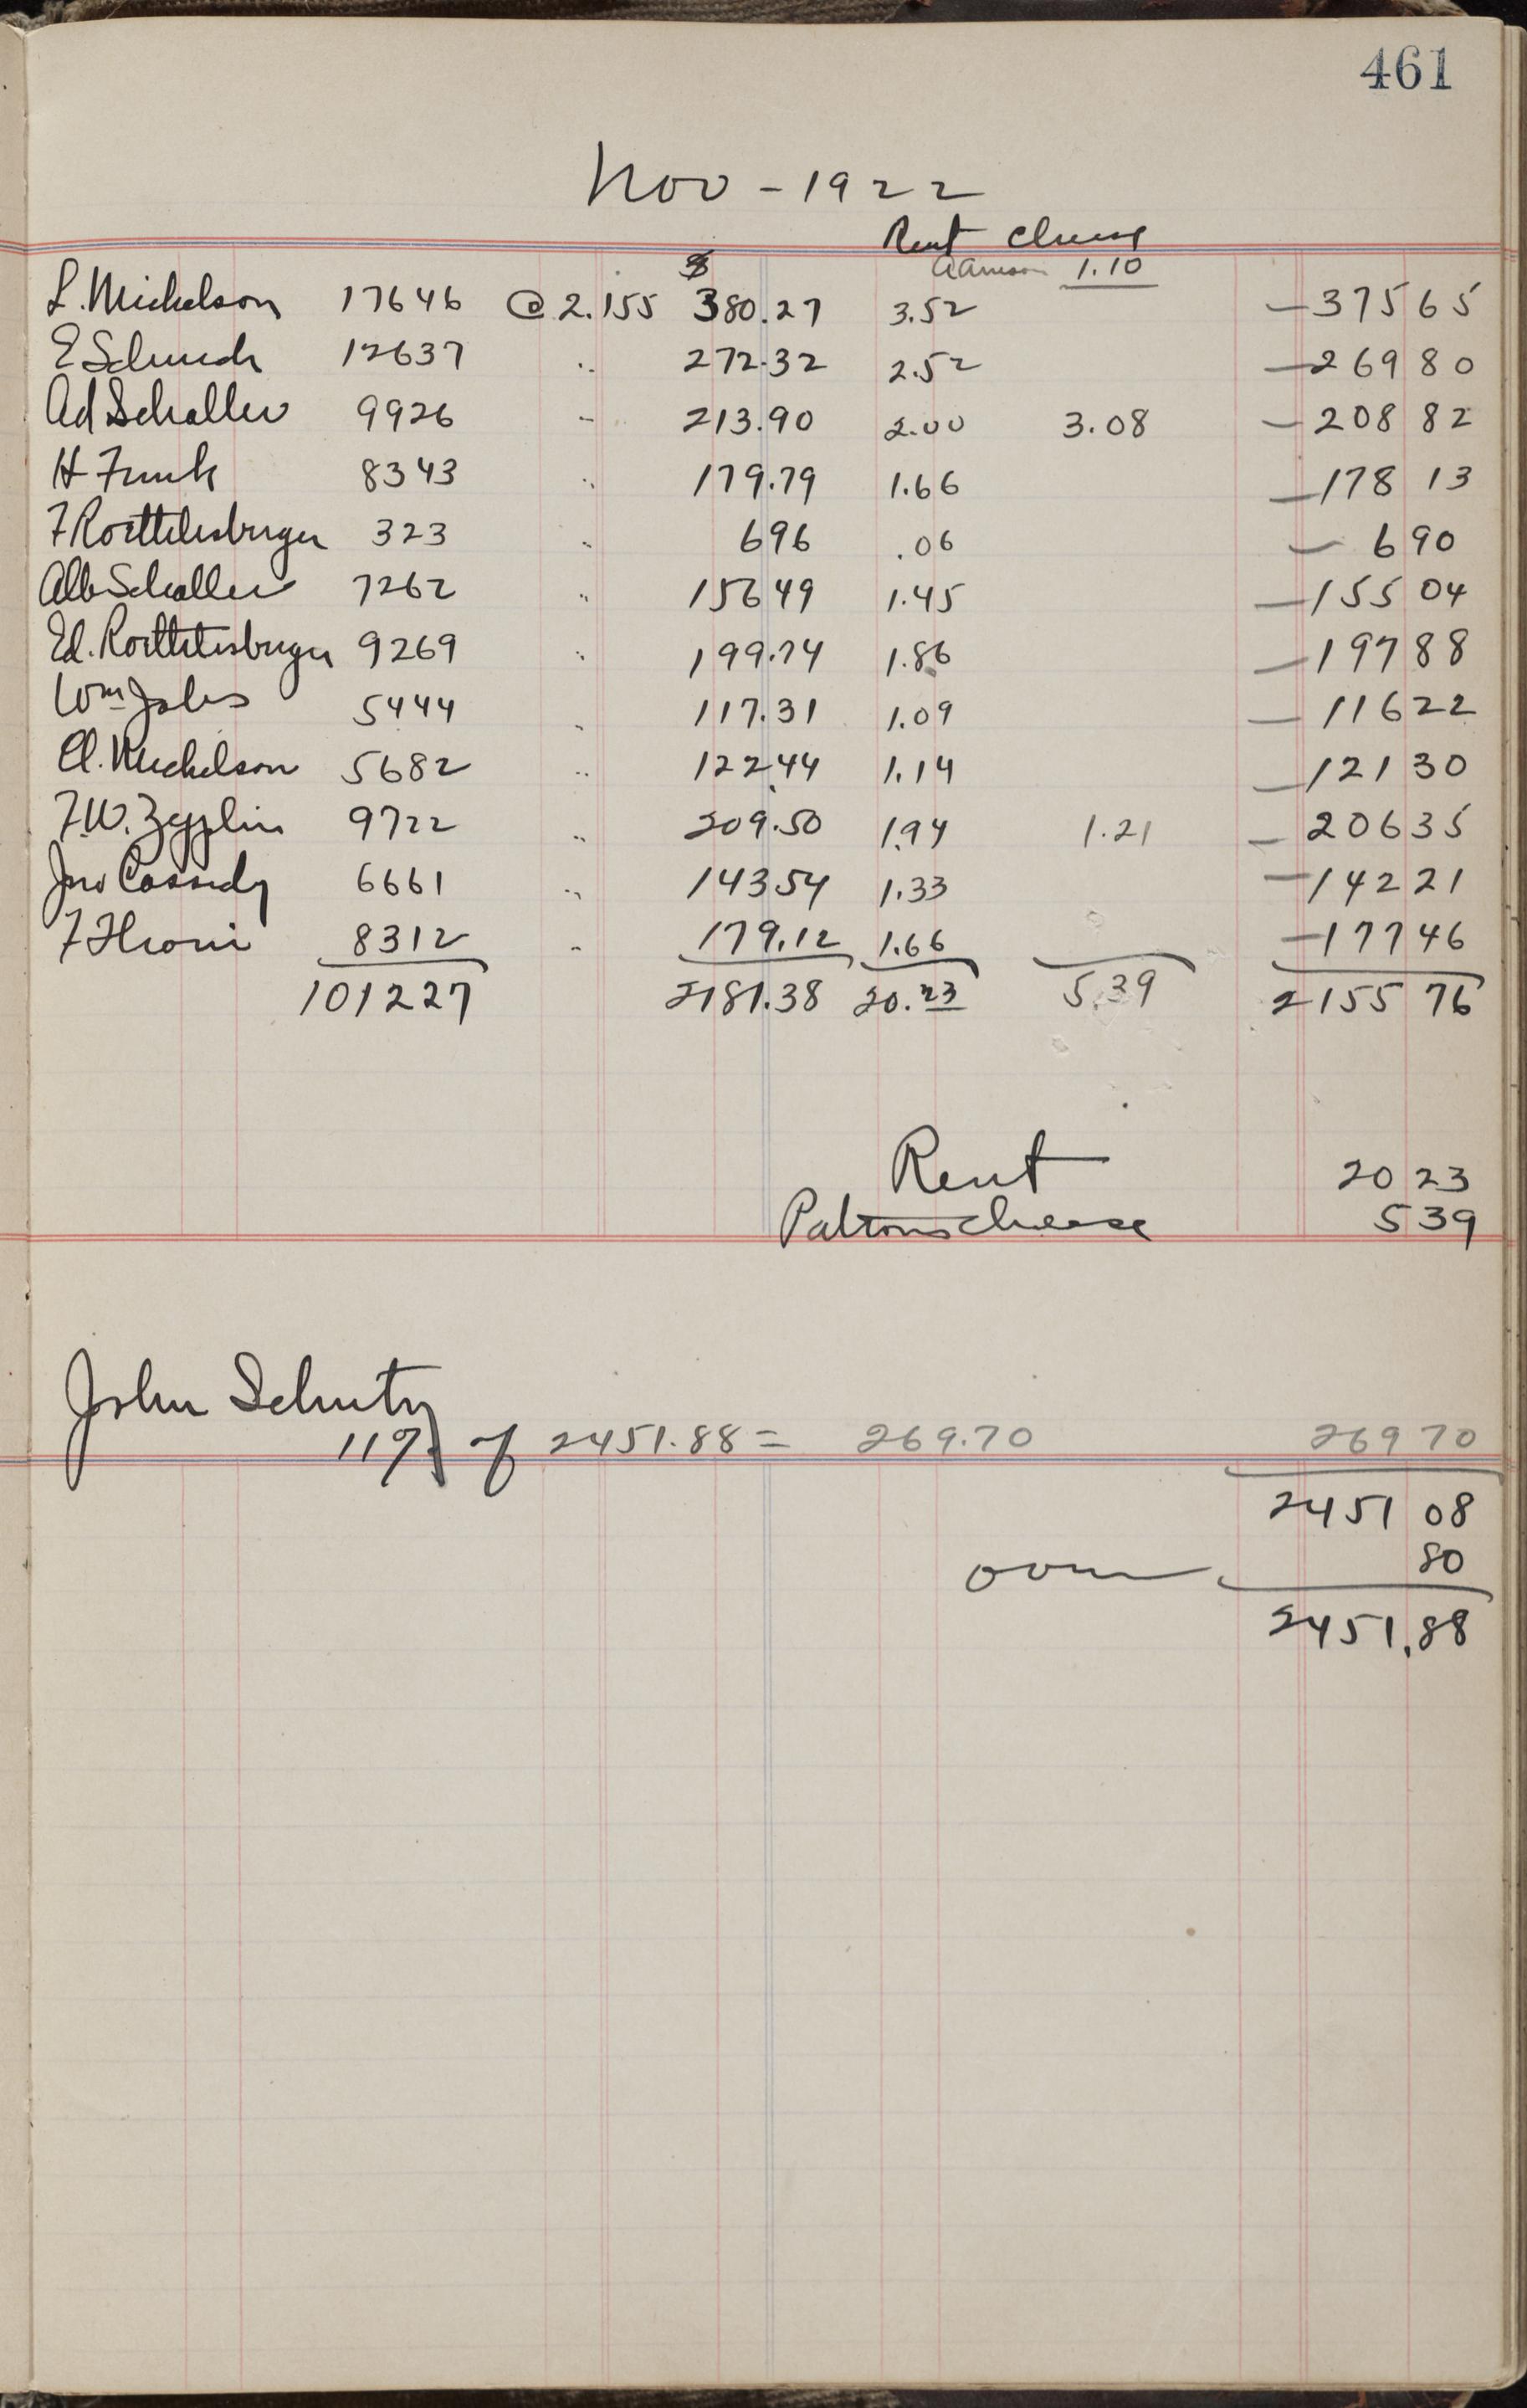 461
Nov - 1922
Rent Cheese
1.10
L. Michelson 17646 @ 2.155 $ 380.27 3.52 - 375 65
E Schmch 12637 " 272.32 2.52 - 269 80
Ad Schaller 9926 " 213.90 2.00 3.08 - 208 82
H Funk 8343 " 179.79 1.66 - 178 13
F Roethlisberger 323 " 6 96 .06 - 6 90
Alb Schaller 7262 " 156 49 1.45 - 155 04
Ed. Roethlisberger 9269 " 199.74 1.86 - 197 88
Wm Jobes 5444 " 117.31 1.09 - 116 22
Cl. Michelson 5682 " 122.44 1.14 - 121 30
F.W. Zepplin 9722 " 209.50 1.94 1.21 - 206 35
Jno Cassidy 6661 " 143 54 1.33 - 142 21
F Hroni 8312 " 179.12 1.66 - 177 46
101227 2181.38 20.23 5.39 2155 76
Rent 20 23
Patrons cheese 5 39
John Schutz
11% of 2451.88 = 269.70 269 70
2451 08
over 80
2451.88